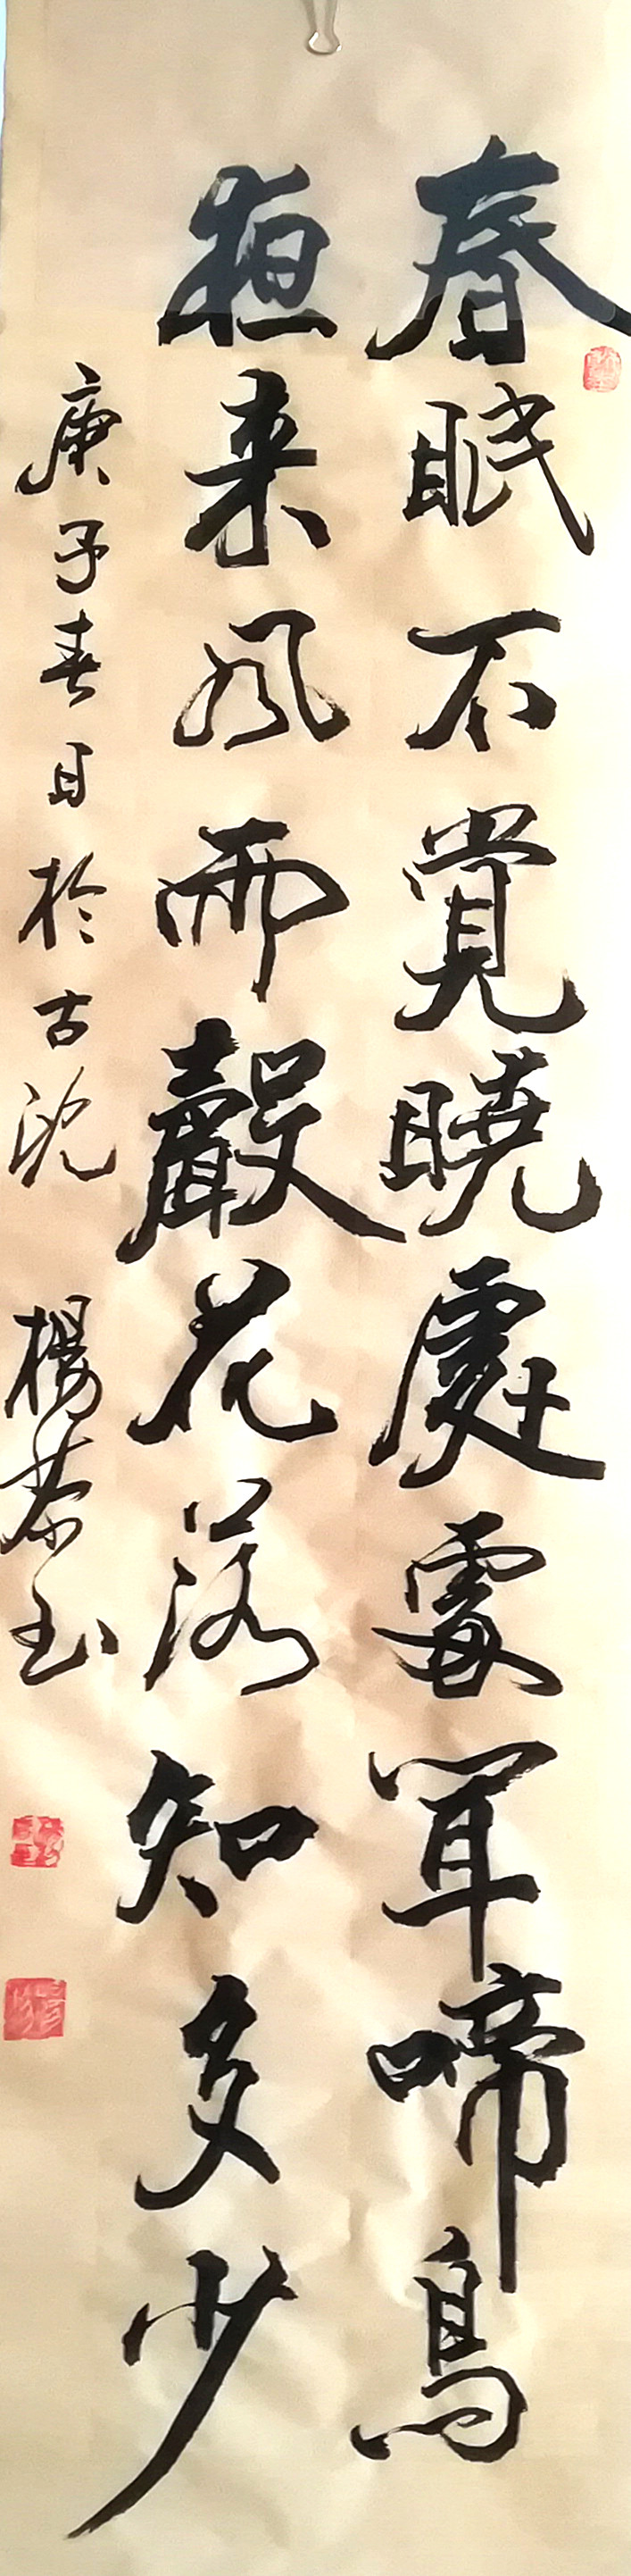 春眠不覺曉處處聞啼鳥
夜来風雨聲花落知多少
庚子春日於古沈 楊恭玉